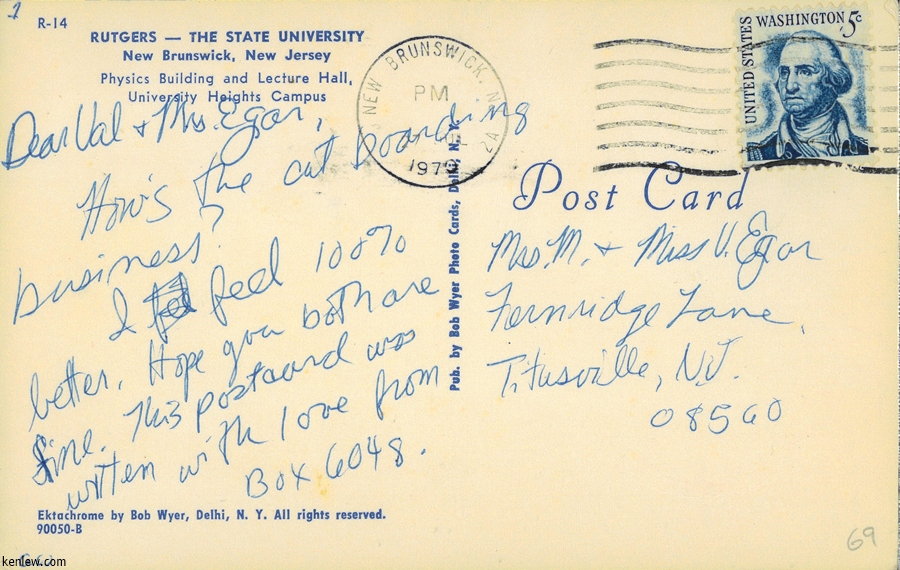 R-14
RUTGERS — THE STATE UNIVERSITY
New Brunswick, New Jersey
Physics Building and Lecture Hall,
University Heights Campus
Dear Val & Mrs. Egar,
How's the cat boarding
business?
I feel 100%
better. Hope you both are
fine. This postcard was
written with love from
Box 6048.
Ektachrome by Bob Wyer, Delhi, N. Y. All rights reserved.
90050-B
Pub. by Bob Wyer Photo Cards, Delhi, N. Y.
NEW BRUNSWICK, N
PM
197
UNITED STATES
WASHINGTON 5c
Post Card
Mrs. M. & Miss V. Egar
Fernridge Lane,
Titusville, N.J.
08560
69
kenlew.com